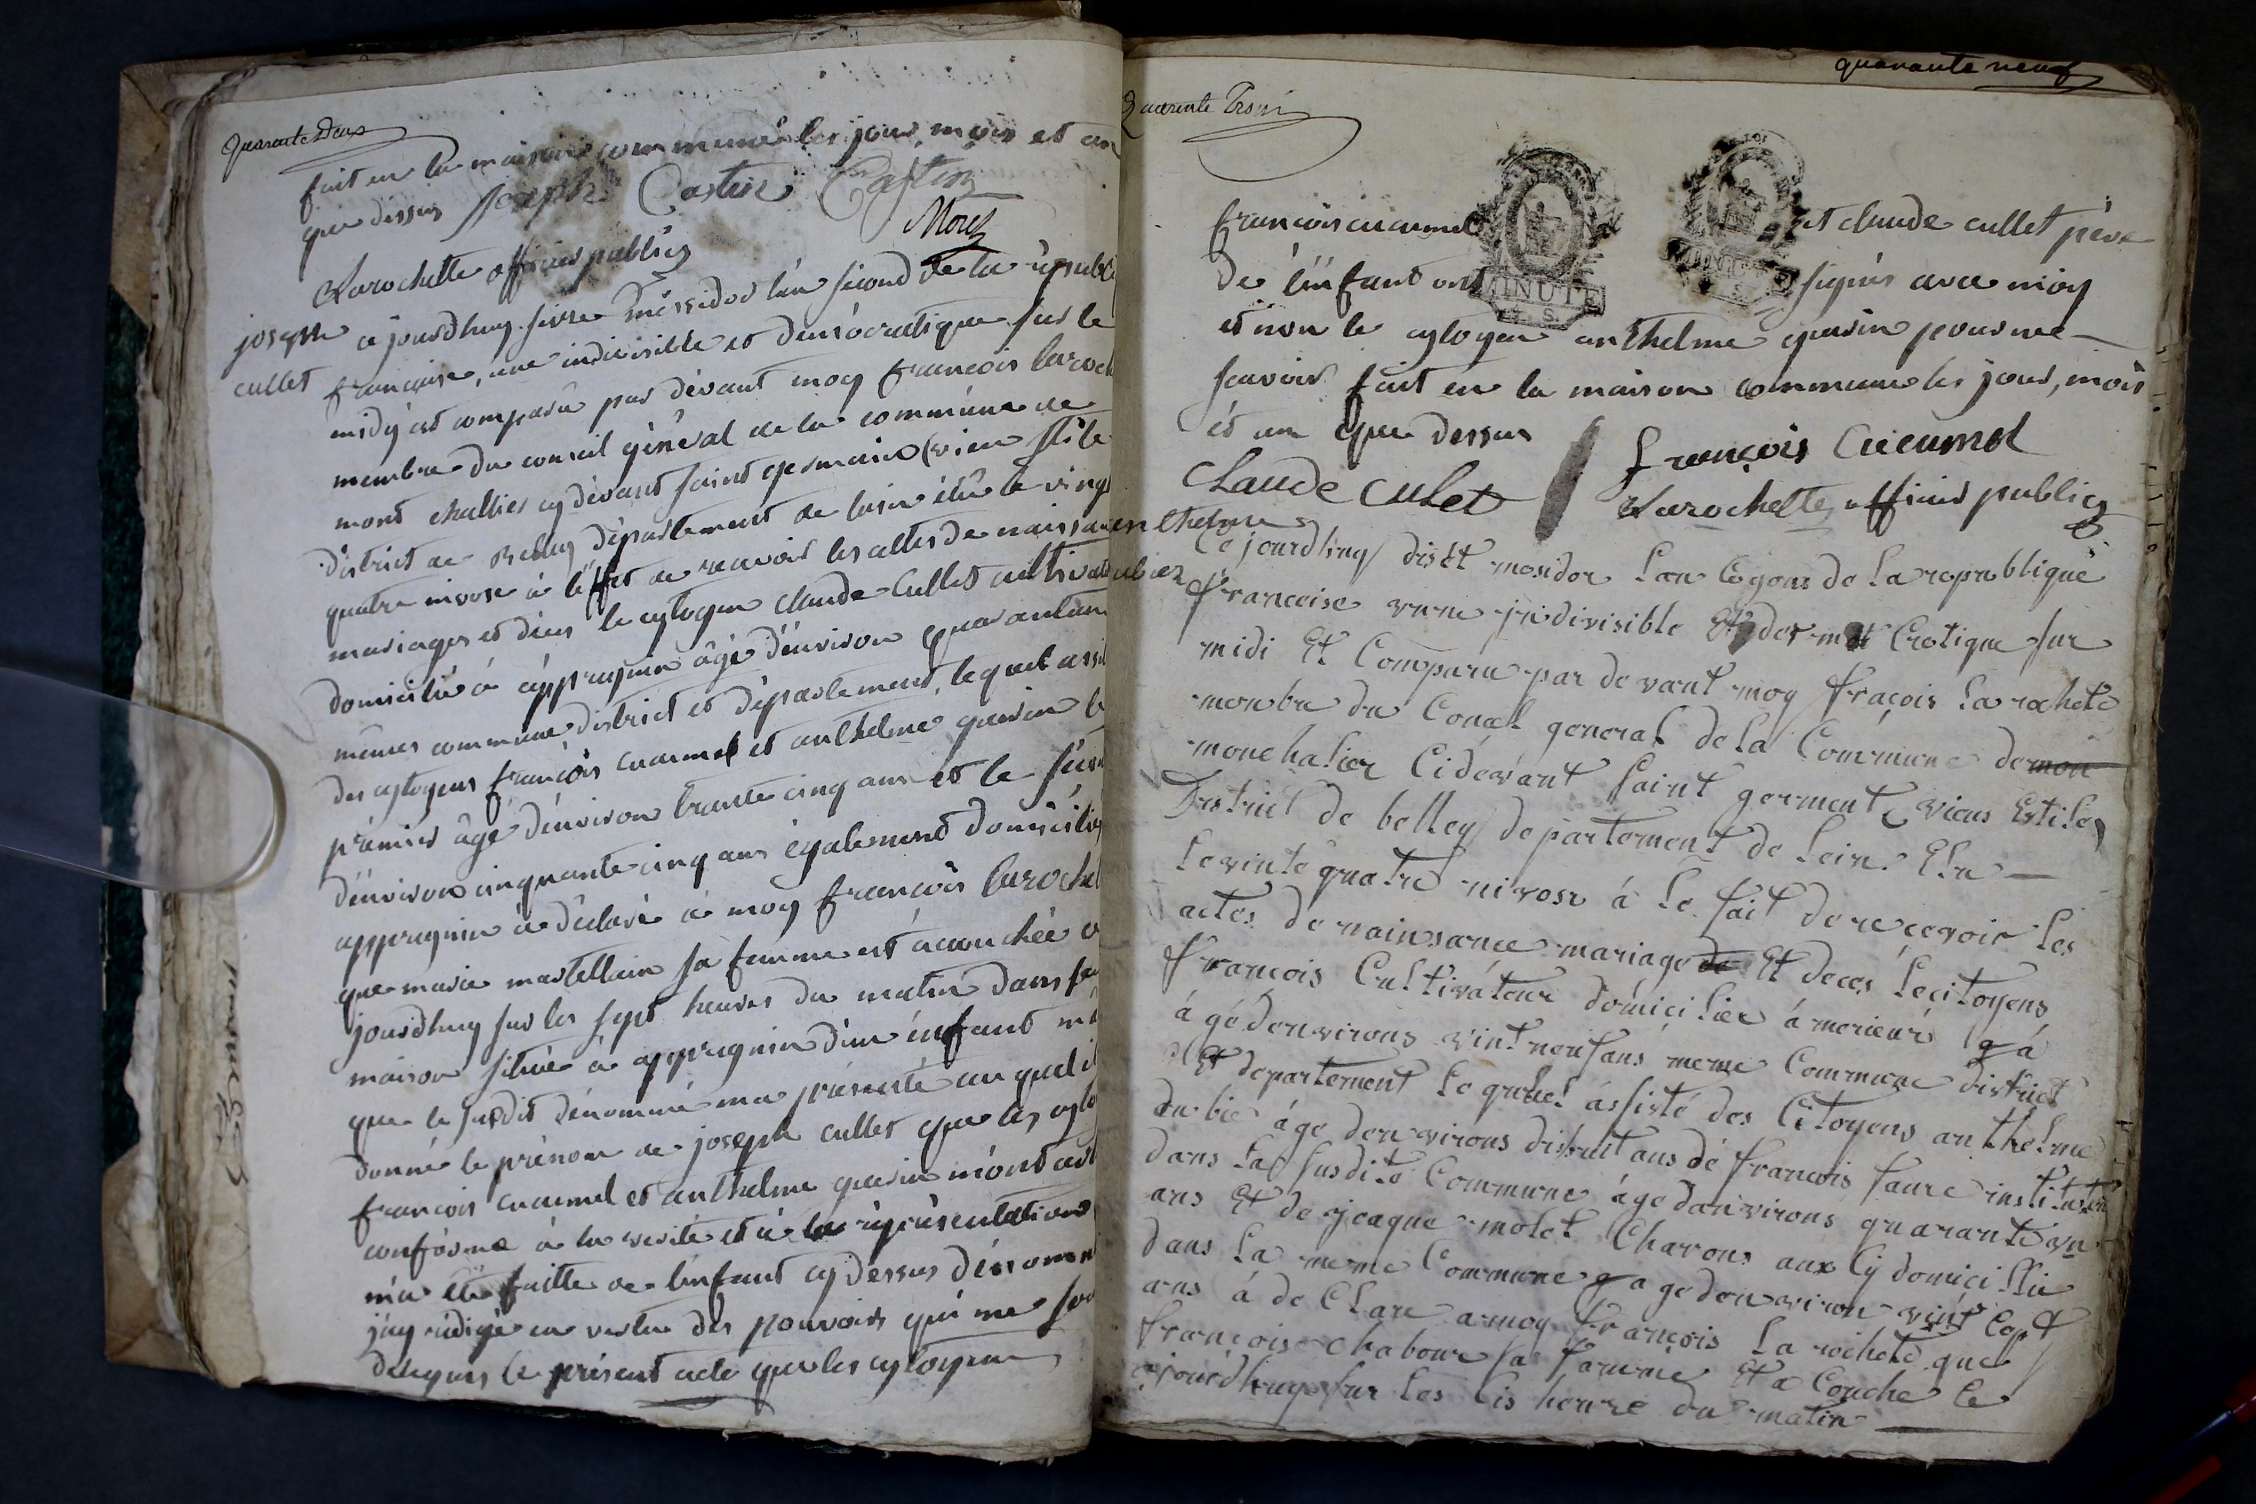 quarante deux
fait en la maison commune les jour, mois et an
que dessus Joseph Castin Castin
Morel
Larochette officier publicq
joseph
cullet
ce jourdhuy seise messidor l'an second de la republi
francaise, une indivisible et democratique sur le
midy est comparu par devant moy francois laroch
membre du conseil géneral de la commune de
mont challier cy devant saint germain (vieux stile
district de Belley departement de lain élu le vingt
quatre nivose à l'effet de recevoir les actes de naissance
mariages et deces le cytoyen claude Cullet cultivat
domicilié à appregnin âgé d'environ quarante un
mêmes commune district et département, lequel assi
des cytoyens françois cucumel et anthelme guerin le
premier âgé d'environ trante cinq ans et le secon
d'environ cinquante cinq ans également domicilies
appregnin a déclaré à moy francois laroche
que marie martellain sa femme est acouchée ce
jourdhuy sur les sept heures du matin dans sa
maison située à appregnin d'un enfant mâ
que le susdit dénommé m'a présenté au quel il
donné le prénom de joseph cullet que les cyto
françois cucumel et anthelme guerin m'ont dit
conforme à la verité et à la représentation
m'a été faitte de l'enfant cy dessus dénommé
j'ay rédigé en vertu des pouvoirs qui me son
delegués le présent acte que les cytoyens
quarante neuf
Quarente Trois
françois cucumel et claude cullet père
de l'enfant ont signés avec moy
MINUTE
et non le cytoyen anthelme guerin pour ne
scavoir fait en la maison commune les jour, mois
et an que dessus
françois Cucumel
Claude Culet
Larochette officier publicq
anthelme
ce jourdhuy diset mesidor lan segons de la republique
francoise vune jndivisible Et demot Cratique sur
midi Et Comparu par devant moy fraçois la rochete
monbre du Conel general de la Commune de mon
monchalier Cidevant saint germent (vieus Estile)
District de belley departement de lein. Elu
le vinte quatre nivose á le fait de recevoir les
actes de naissance mariage de Et deces le citoyens
francois Cultivateur domicilier á merieur g á
á gé denvirons vint neuf ans meme Commune district
Et departement le quuel assisté des Citoyens anthelme
dubie áge denvirons disuit ans de francois faure instituteur
dans la susdite Commune áge danvirons quarante un
ans Et de jeaque molet Charons aux Cy domicillie
dans la meme Commune g age denviron vint Cet
ans á de Clare a moy francois la rochete que
francoise chabour sa famme Et a Couche Ce
ajourdhuy sur les sis heure du matin